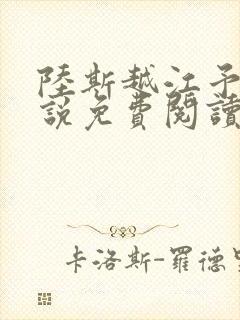 陸斯越江予
說免費閱讀
卡洛斯-羅德里